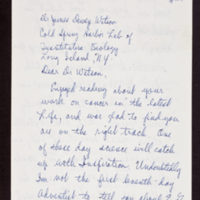 Dr James Dewey Watson
Cold Spring Harbor Lab of
Quantitative Biology
Long Island, NY
Dear Dr Watson,
Enjoyed reading about your
work on cancer in the latest
Life, and was glad to find you
are on the right track. One
of these days science will catch
up with Inspiration. Undoubtedly
I'm not the first seventh day
Adventist to tell you about E. G.